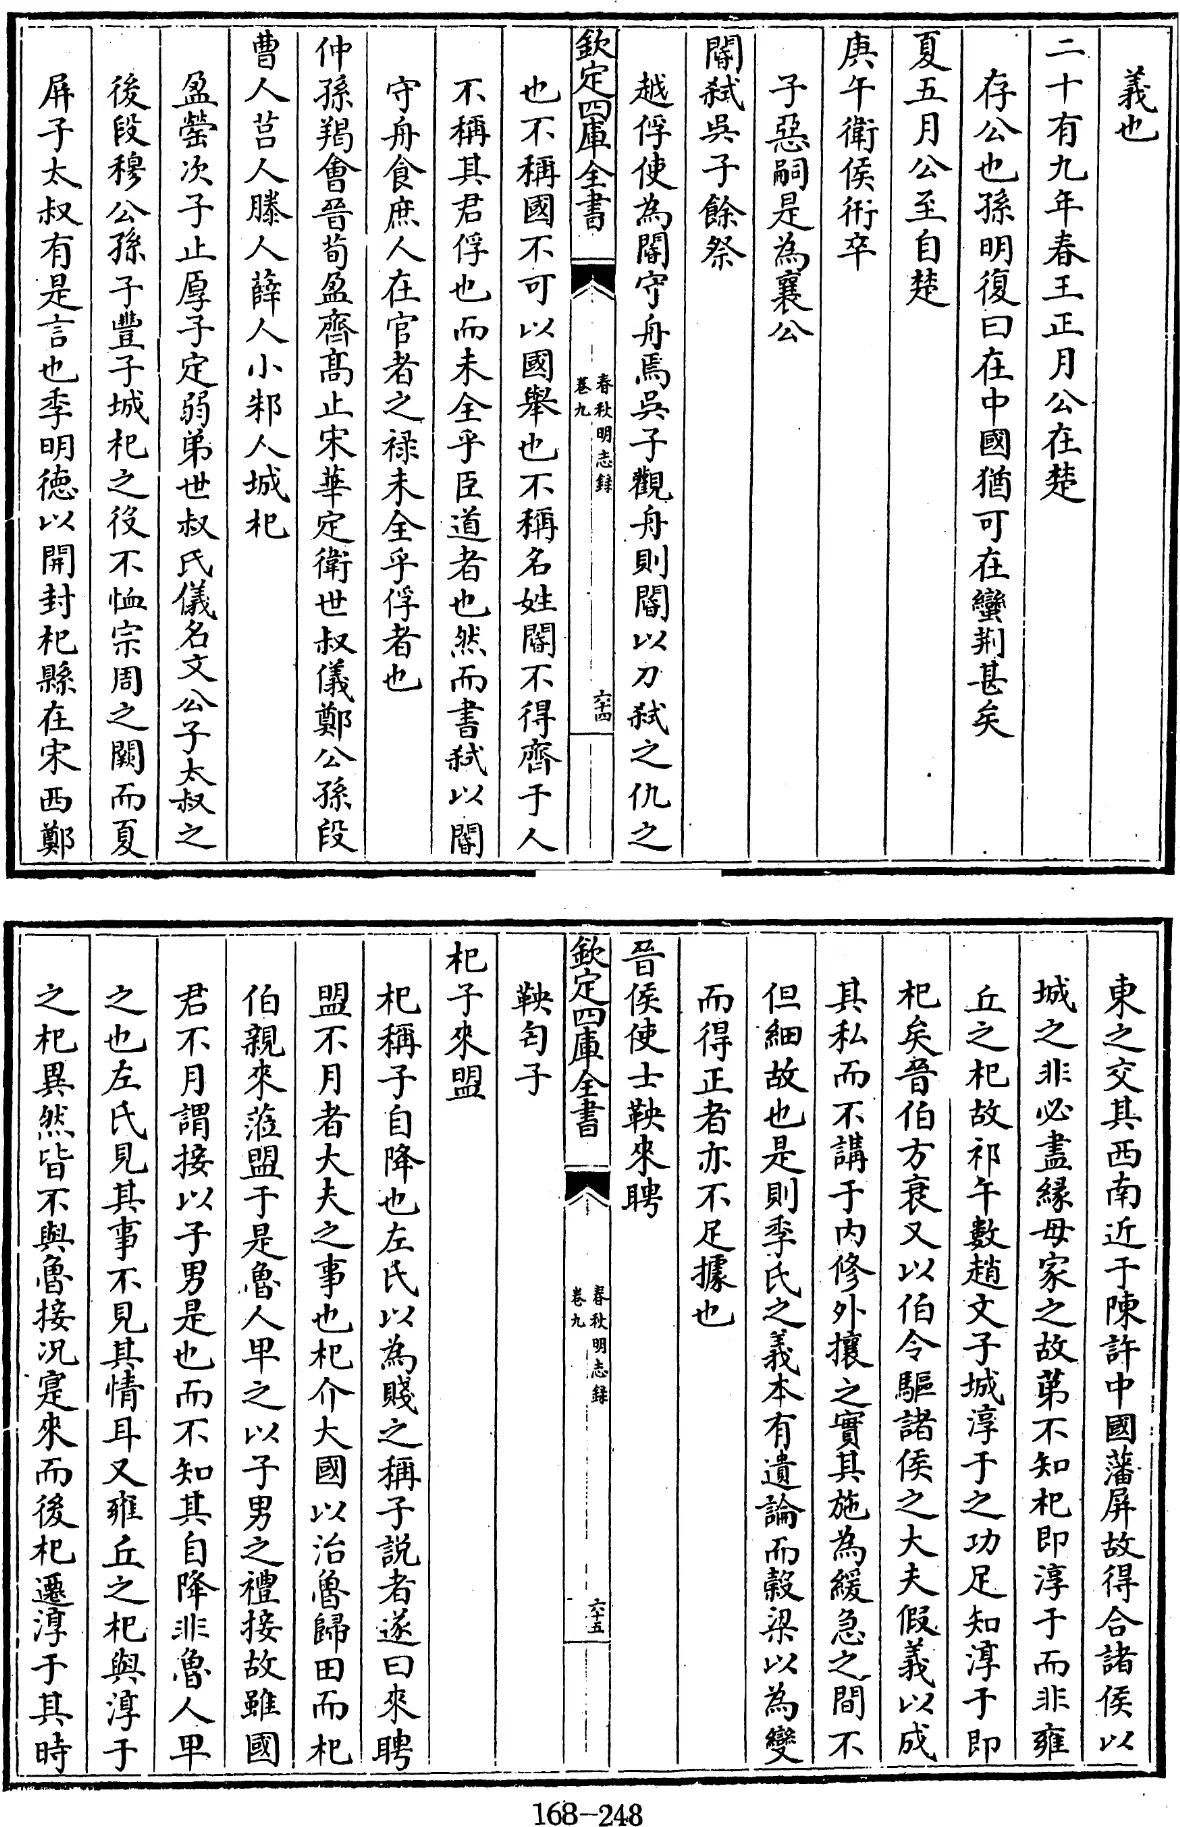 義也
二十有九年春王正月公在楚
存公也孫明復曰在中國猶可在蠻荆甚矣
夏五月公至自楚
庚午衛侯衎卒
子惡嗣是為襄公
閽弑吳子餘祭
越俘使為閽守舟焉吳子觀舟則閽以刀弑之仇之
欽定四庫全書
春秋明志録
卷九
六十四
也不稱國不可以國舉也不稱名姓閽不得齊于人
不稱其君俘也而未全乎臣道者也然而書弑以閽
守舟食庶人在官者之禄未全乎俘者也
仲孫羯會晉荀盈齊髙止宋華定衛世叔儀鄭公孫段
曹人莒人滕人薛人小邾人城杞
盈罃次子止厚子定弱弟世叔氏儀名文公子太叔之
後段穆公孫子豐子城杞之役不恤宗周之闕而夏
屏子太叔有是言也季明德以開封杞縣在宋西鄭
東之交其西南近于陳許中國藩屏故得合諸侯以
城之非必盡緣母家之故第不知杞即淳于而非雍
丘之杞故祁午數趙文子城淳于之功足知淳于即
杞矣晉伯方衰又以伯令驅諸侯之大夫假義以成
其私而不講于内修外攘之實其施為緩急之間不
但細故也是則季氏之義本有遺論而榖梁以為變
而得正者亦不足據也
晉侯使士鞅來聘
欽定四庫全書
春秋明志録
卷九
六十五
鞅匄子
杞子來盟
杞稱子自降也左氏以為賤之稱子説者遂曰來聘
盟不月者大夫之事也杞介大國以治魯歸田而杞
伯親來涖盟于是魯人卑之以子男之禮接故雖國
君不月謂接以子男是也而不知其自降非魯人卑
之也左氏見其事不見其情耳又雍丘之杞與淳于
之杞異然皆不與魯接況寔來而後杞遷淳于其時
168-248